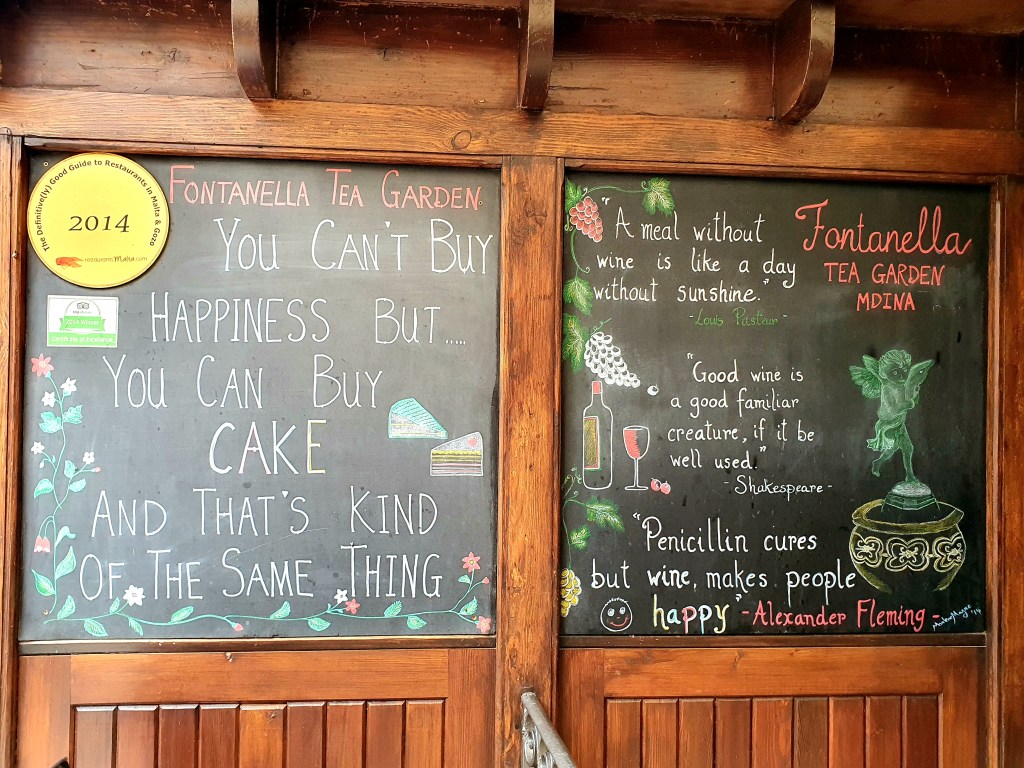 The Definitive(ly) Good Guide to Restaurants in Malta & Gozo
2014
restaurantsmalta.com
FONTANELLA TEA GARDEN
YOU CAN'T BUY
HAPPINESS BUT.....
YOU CAN BUY
CAKE
AND THAT'S KIND
OF THE SAME THING
2014 Winner
Certificate of Excellence
"A meal without
wine is like a day
without sunshine."
- Louis Pasteur -
Fontanella
TEA GARDEN
MDINA
"Good wine is
a good familiar
creature, if it be
well used."
- Shakespeare -
"Penicillin cures
but wine, makes people
happy" - Alexander Fleming -
'14